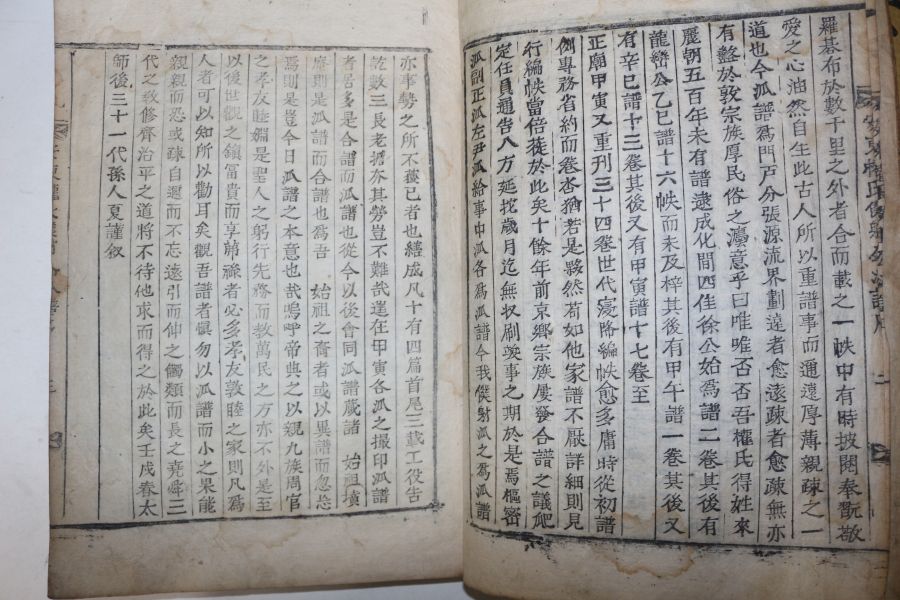 羅碁布於數十里之外者合而載之一帙中有時披閱奉翫敬
愛之心油然自生此古人所以重譜事而通遠厚薄親疎之一
道也今派譜爲門戶分張源流界劃遠者愈遠疎者愈疎無亦
有盭於敦宗族厚民俗之濔意乎曰唯唯否否吾權氏得姓來
麗朝五百年未有譜逮成化間四佳徐公始爲譜二卷其後有
龍巒公乙巳譜十六帙而未及梓其後有甲午譜一卷其後又
有辛巳譜十三卷其後又有甲寅譜十七卷至
正廟甲寅又重刊三十四卷世代寖降編帙愈多庸時從初譜
例專務省約而卷峜猶若是夥然苟如他家譜不厭詳細則見
行編帙當倍蓰於此矣十餘年前京鄉宗族屢發合譜之議爬
定任員通告八方延拕歲月迄無收刷竣事之期於是焉樞密
派副正派左尹派給事中派各爲派譜今我僕射派之爲派譜
亦事勢之所不獲已者也繕成凡十有四篇首尾三載工役告
訖數三長老摭夯其勞豈不難哉運在甲寅各派之撮印派譜
者居多是合譜而派譜也從今以後會同派譜蕆諸 始祖墳
庠則是派譜而合譜也爲吾 始祖之裔者或以畢譜而忽恙
焉則是豈今日派譜之本意也哉嗚呼帝典之以親九族周官
之孝友睦婣是聖人之躬行先務而教萬民之方亦不外是至
以後世觀之鎭富貴而享茀祿者必多孝友敦睦之家則凡爲
人者可以知所以勸耳矣觀吾譜者愼勿以派譜而小之果能
親親而恐或疎自邇而不忘遠引而伸之觸類而長之堯舜三
代之敎修齊治平之道將不待他求而得之於此矣壬戌春太
師後三十一代孫人夏謹叙